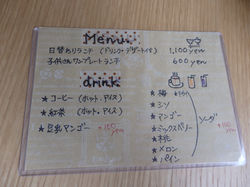 Menu
日替わりランチ (ドリンク・デザート付き) 1,100 yen
子供さんワンプレートランチ 600 yen
drink
★コーヒー (ホット、アイス)
★紅茶 (ホット、アイス)
★豆乳マンゴー +150 yen
★梅 +150
★シソ
★マンゴー
★ミックスベリー
★桃
★メロン
★パイン
ソーダ
+100 yen